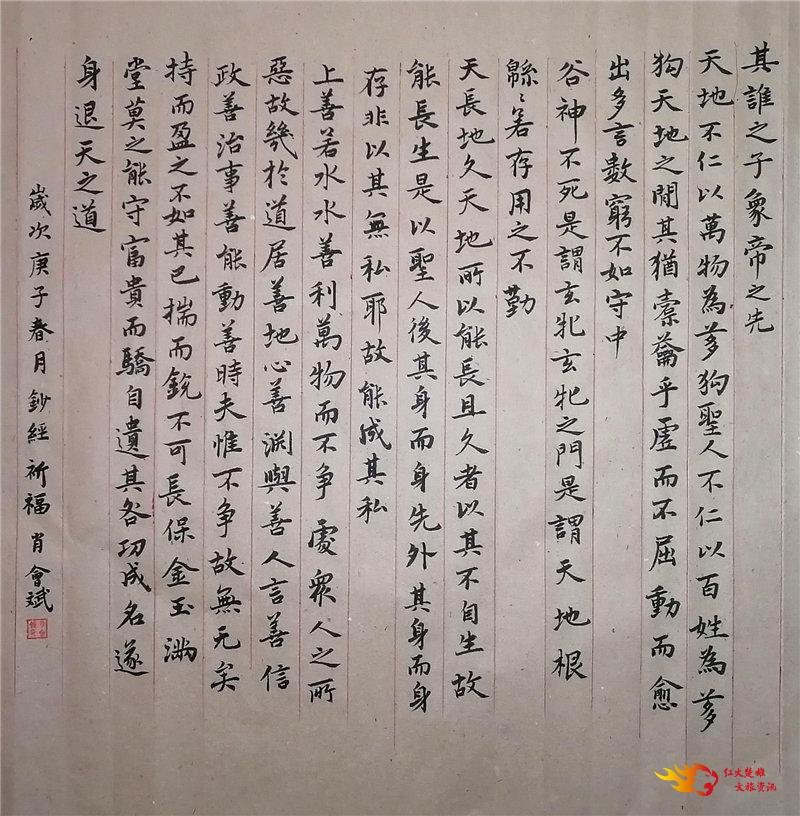 其誰之子象帝之先
天地不仁以萬物為芻狗聖人不仁以百姓為芻
狗天地之間其猶橐籥乎虛而不屈動而愈
出多言數窮不如守中
谷神不死是謂玄牝玄牝之門是謂天地根
緜〻若存用之不勤
天長地久天地所以能長且久者以其不自生故
能長生是以聖人後其身而身先外其身而身
存非以其無私耶故能成其私
上善若水水善利萬物而不爭處眾人之所
惡故幾於道居善地心善淵與善人言善信
政善治事善能動善時夫惟不爭故無尤矣
持而盈之不如其已揣而銳不可長保金玉滿
堂莫之能守富貴而驕自遺其咎功成名遂
身退天之道
歲次庚子春月鈔經祈福肖會斌
红火楚雄
文旅资讯